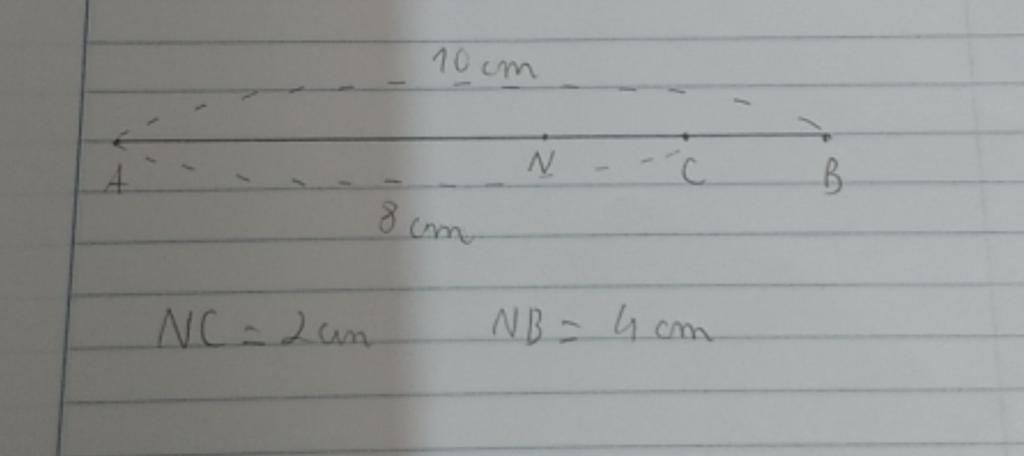 10 cm
A N C B
8 cm
NC = 2 cm NB = 4 cm